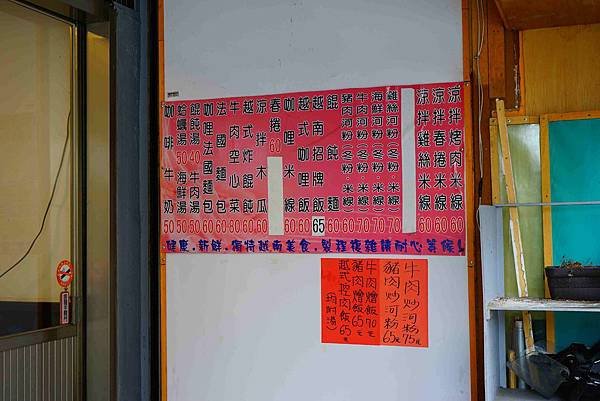 涼拌烤肉米線 60
涼拌春捲米線 60
涼拌雞絲米線 60
雞絲河粉(冬粉·米線) 70
海鮮河粉(冬粉·米線) 70
牛肉河粉(冬粉·米線) 70
豬肉河粉(冬粉·米線) 60
餛飩麵 60
越南招牌飯 65
越式咖哩飯 60
咖哩米線 60
春捲 60
涼拌木瓜 60
越式炸餛飩 60
牛肉空心菜 80
法國麵包 60
咖哩法國麵包 60
餛飩湯 40 牛肉湯 50
蛤蠣湯 50 海鮮湯 50
咖啡牛奶 50
健康.新鮮.獨特越南美食.製程複雜請耐心等候!
牛肉炒河粉75元
豬肉炒河粉65元
牛肉燴飯70元
豬肉燴飯65元
越式控肉飯65元
均附湯